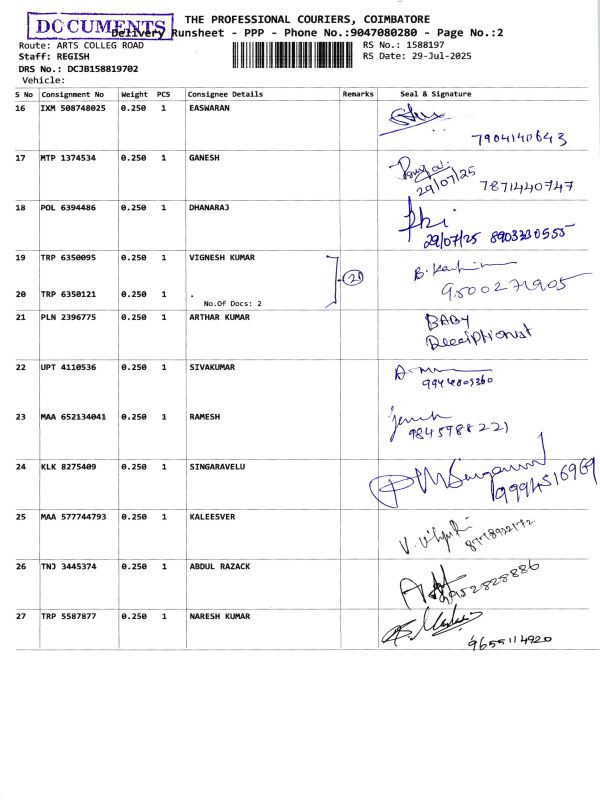 THE PROFESSIONAL COURIERS, COIMBATORE
DOCUMENTS
Delivery Runsheet - PPP - Phone No.:9047080280 - Page No.:2
Route: ARTS COLLEG ROAD
RS No.: 1588197
Staff: REGISH
RS Date: 29-Jul-2025
DRS No.: DCJB158819702
Vehicle:
S No Consignment No Weight PCS Consignee Details Remarks Seal & Signature
16 IXM 508748025 0.250 1 EASWARAN
7904140643
17 MTP 1374534 0.250 1 GANESH
29/07/25 7871440747
18 POL 6394486 0.250 1 DHANARAJ
29/07/25 8903330555
19 TRP 6350095 0.250 1 VIGNESH KUMAR
20 TRP 6350121 0.250 1 .
No.Of Docs: 2
9500271905
21 PLN 2396775 0.250 1 ARTHAR KUMAR
BABY
Receiptionist
22 UPT 4110536 0.250 1 SIVAKUMAR
23 MAA 652134041 0.250 1 RAMESH
9845988221
24 KLK 8275409 0.250 1 SINGARAVELU
9994516969
25 MAA 577744793 0.250 1 KALEESVER
26 TNJ 3445374 0.250 1 ABDUL RAZACK
27 TRP 5587877 0.250 1 NARESH KUMAR
9655114920